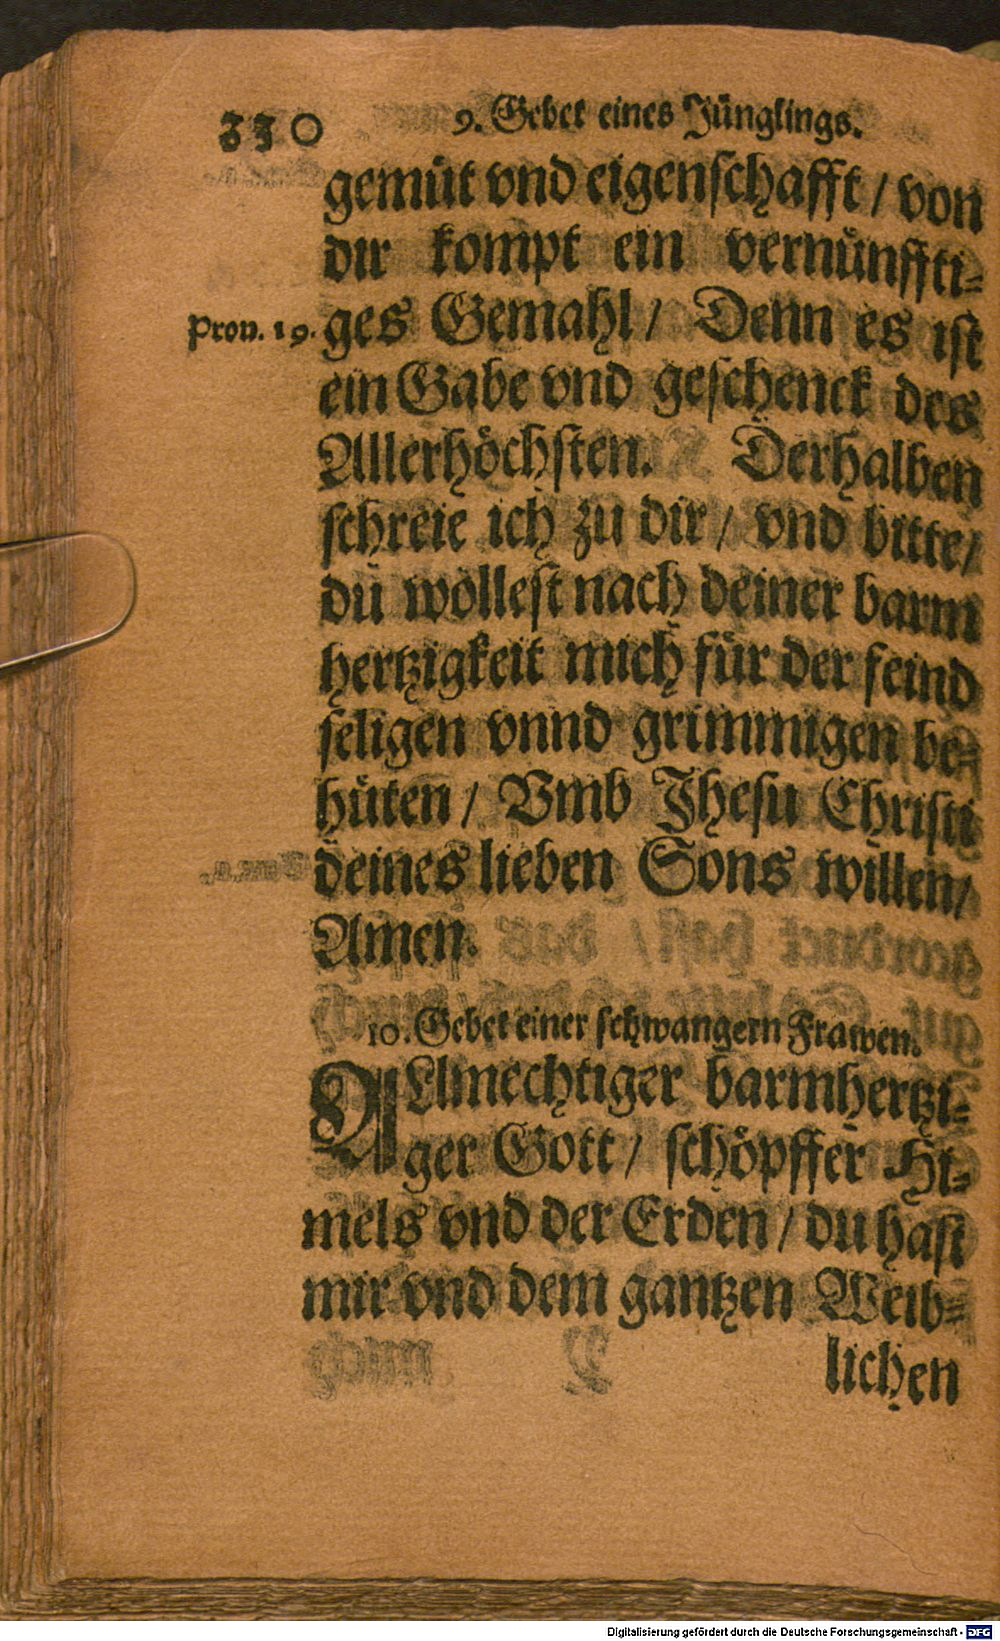 330 9. Gebet eines Jünglings.
gemüt vnd eigenschafft / von
dir kompt ein vernünffti-
Prov. 19. ges Gemahl / Denn es ist
ein Gabe vnd geschenck des
Allerhöchsten. Derhalben
schreie ich zu dir / vnd bitte /
du wollest nach deiner barm
hertzigkeit mich für der feind
seligen vnnd grimmigen be-
hüten / Vmb Jhesu Christi
deines lieben Sons willen /
Amen.
10. Gebet einer schwangern Frawen.
ALlmechtiger barmhertzi-
ger Gott / schöpffer Hi-
mels vnd der Erden / du hast
mir vnd dem gantzen Weib-
lichen
Digitalisierung gefördert durch die Deutsche Forschungsgemeinschaft - DFG